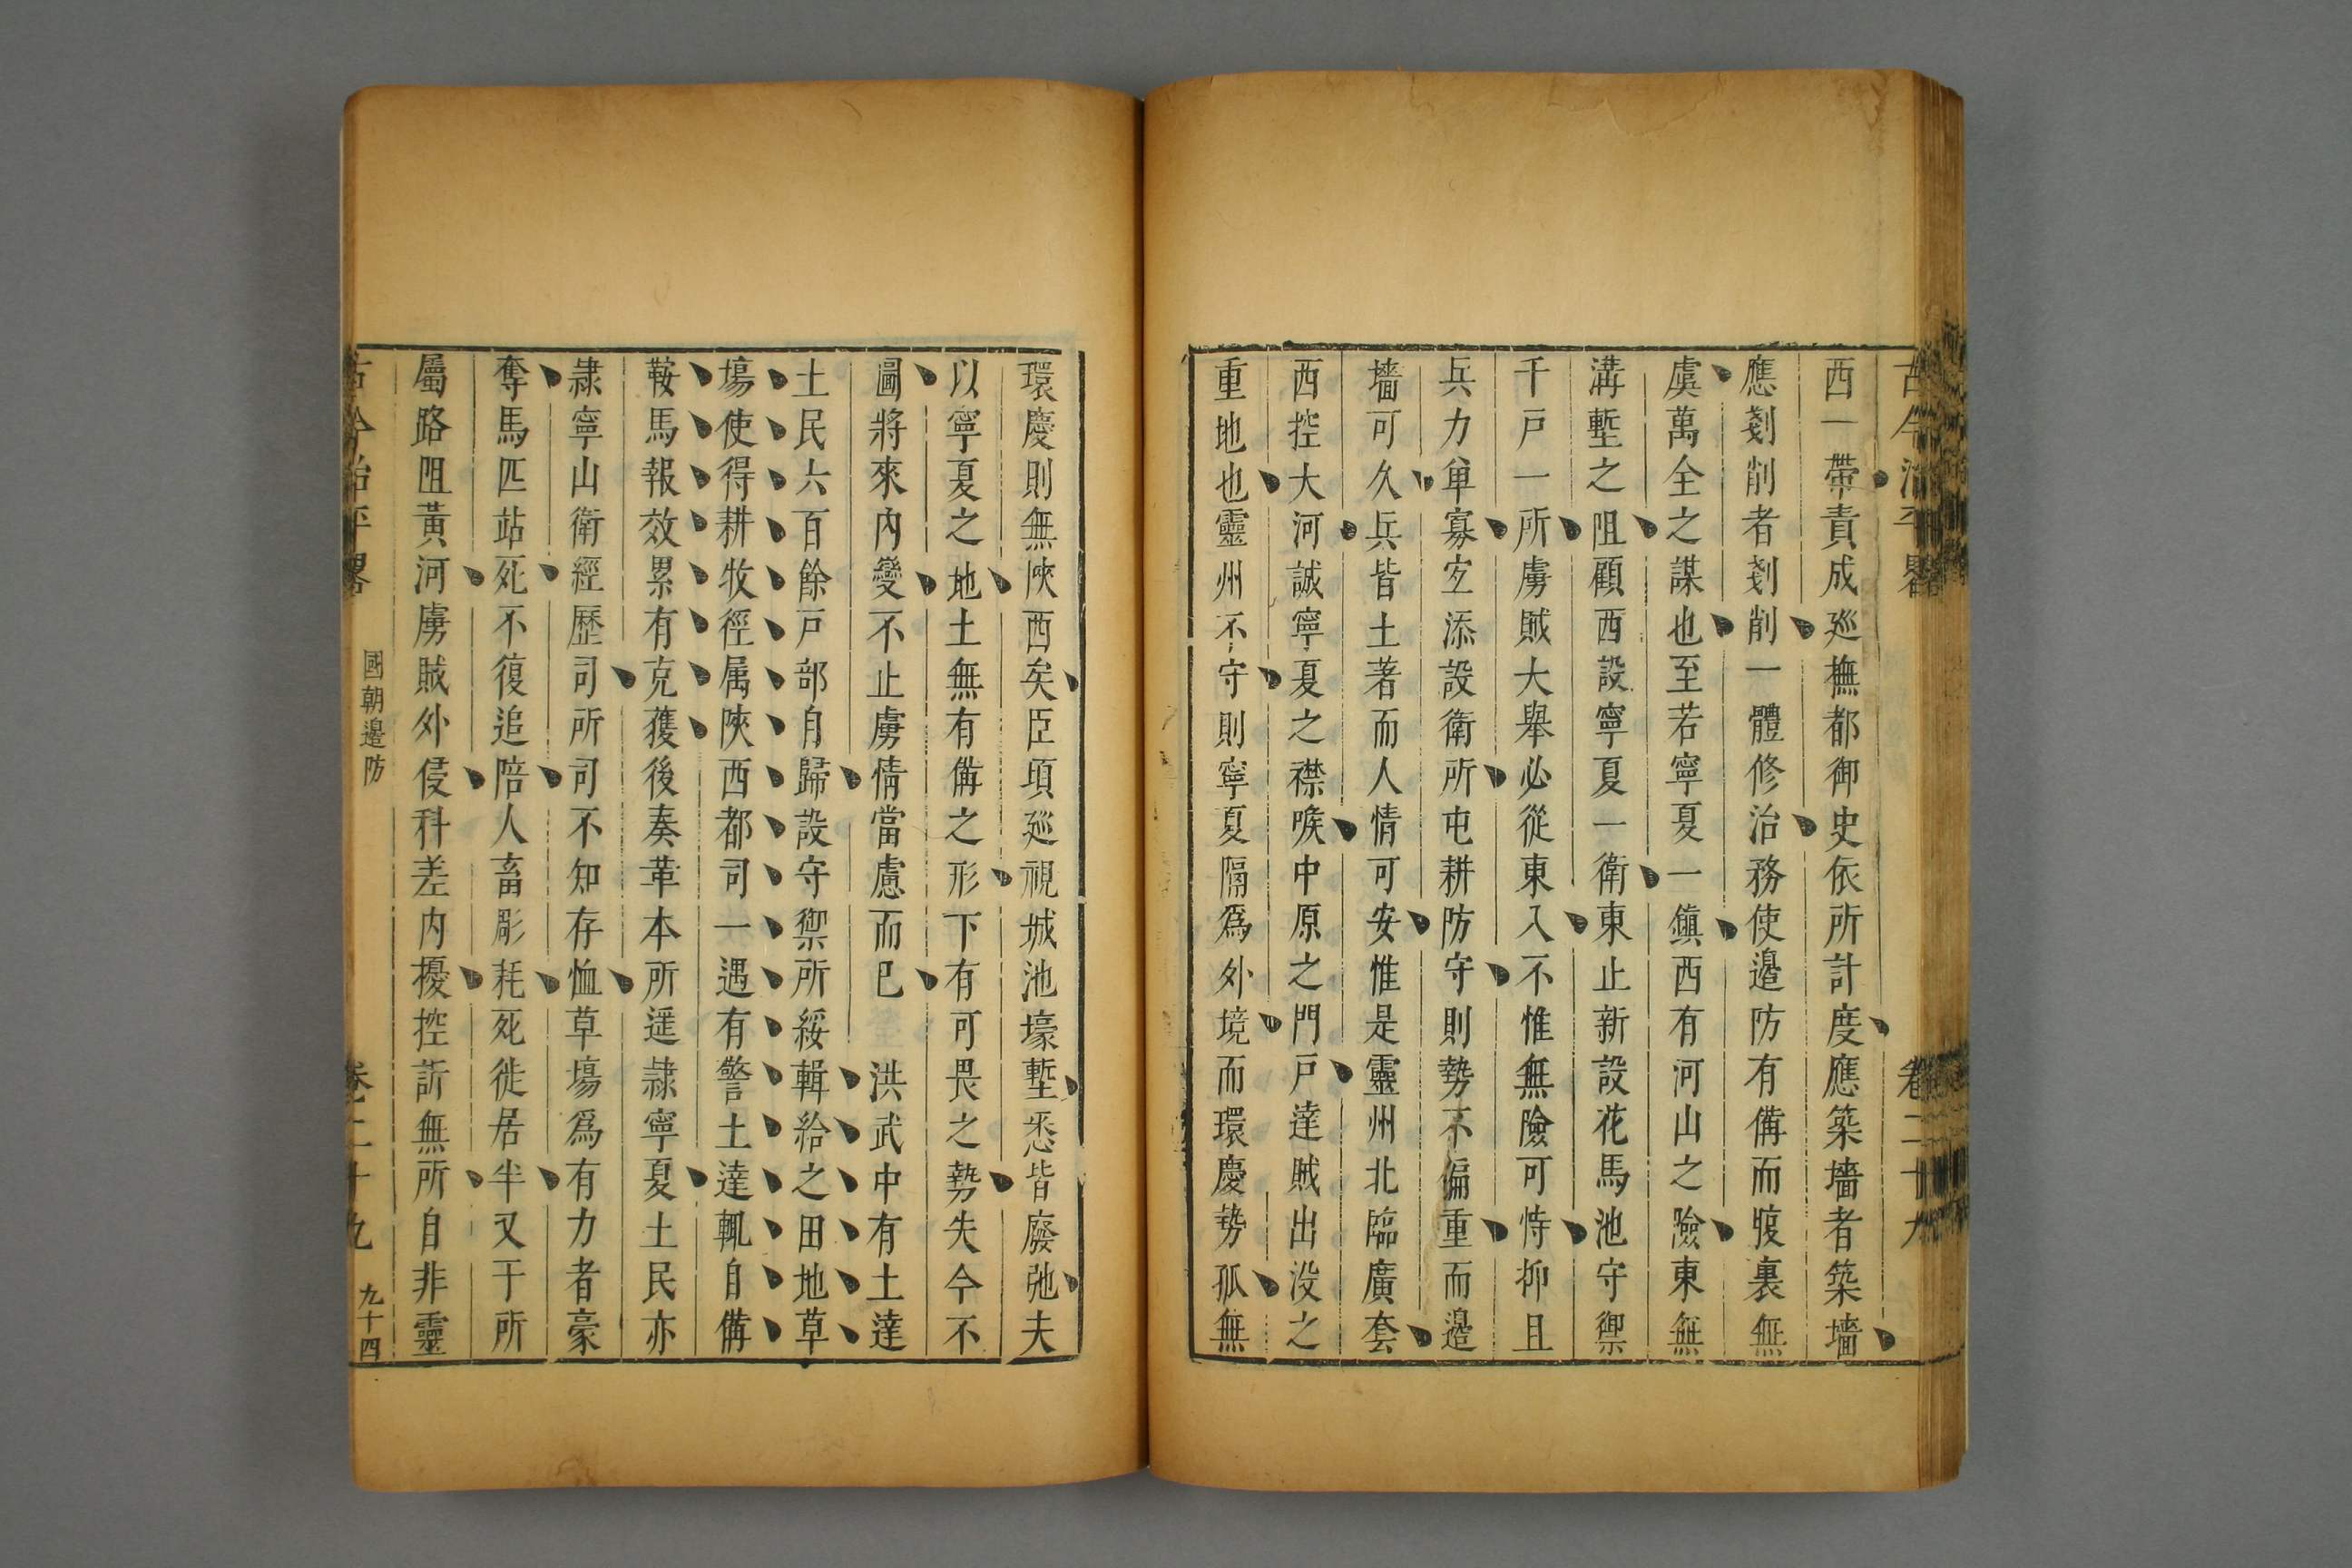 古今治平畧 卷二十九
西一帶責成廵撫都御史依所計度應築墻者築墻
應剗削者剗削一體修治務使邉防有備而腹裏無
虞萬全之謀也至若寧夏一鎮西有河山之險東無
溝塹之阻顧西設寧夏一衛東止新設花馬池守禦
千戸一所虜賊大舉必從東入不惟無險可恃抑且
兵力单寡宜添設衛所屯耕防守則勢不偏重而邉
墻可久兵皆土著而人情可安惟是靈州北臨廣套
西控大河誠寧夏之襟喉中原之門戸達賊出没之
重地也靈州不守則寧夏隔爲外境而環慶勢孤無
環慶則無陜西矣臣頃廵視城池壕塹悉皆廢弛夫
以寧夏之地土無有備之形下有可畏之勢失今不
圖將來内變不止虜情當慮而已 洪武中有土達
土民六百餘戸部自歸設守禦所綏輯給之田地草
塲使得耕牧徑属陜西都司一遇有警土達輒自備
鞍馬報效累有克獲後奏革本所遥隷寧夏土民亦
隷寧山衛經歴司所司不知存恤草塲爲有力者豪
奪馬匹站死不復追陪人畜彫耗死徙居半又于所
屬路阻黃河虜賊外侵科差内擾控訴無所自非靈
古今治平畧 國朝邉防 卷二十九 九十四